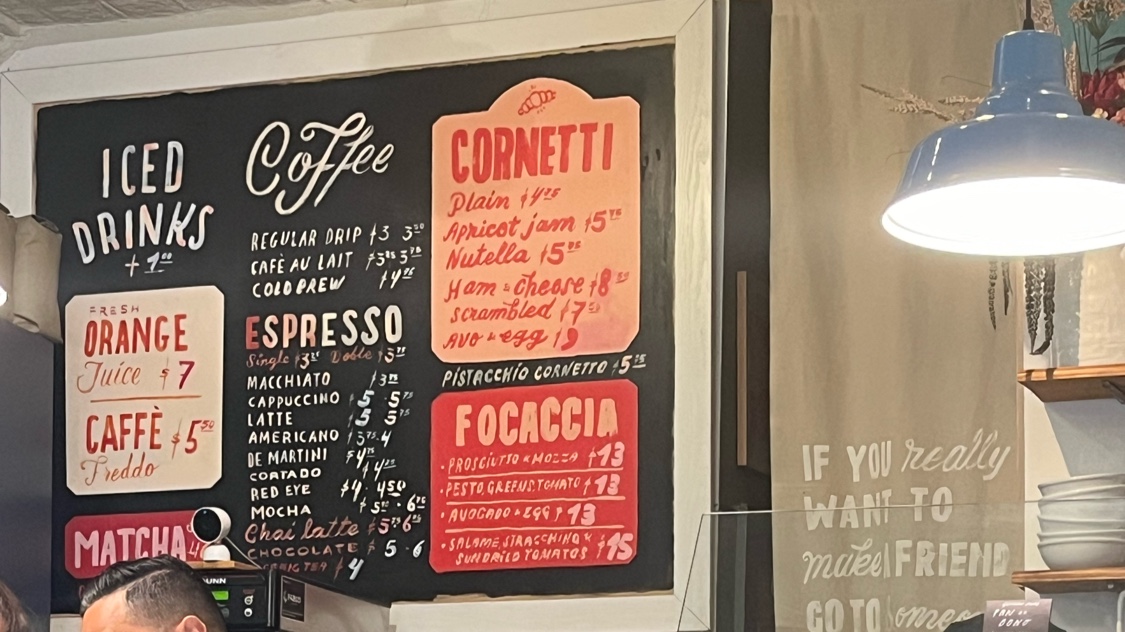 ICED
DRINKS
+ 1.00
FRESH
ORANGE
Juice $7
CAFFÈ $5.50
Freddo
MATCHA
Coffee
REGULAR DRIP $3 3.50
CAFÈ AU LAIT
COLD BREW
ESPRESSO
Single Doble
MACCHIATO
CAPPUCCINO 5 5.75
LATTE 5 5.75
AMERICANO 3.75 4
DE MARTINI
CORTADO
RED EYE $4 4.50
MOCHA
Chai latte
CHOCOLATE 5 · 6
TEA $4
CORNETTI
Plain $4.25
Apricot jam $5
Nutella $5
Ham & cheese $8
Scrambled $7
AVO & egg 9
PISTACCHIO CORNETTO $5
FOCACCIA
· PROSCIUTTO & MOZZA $13
· PESTO, GREENS, TOMATO $13
· AVOCADO & EGG $13
· SALAME, STRACCHINO & $15
SUNDRIED TOMATOS
IF YOU really
WANT TO
make FRIEND
GO TO someo
BUNN